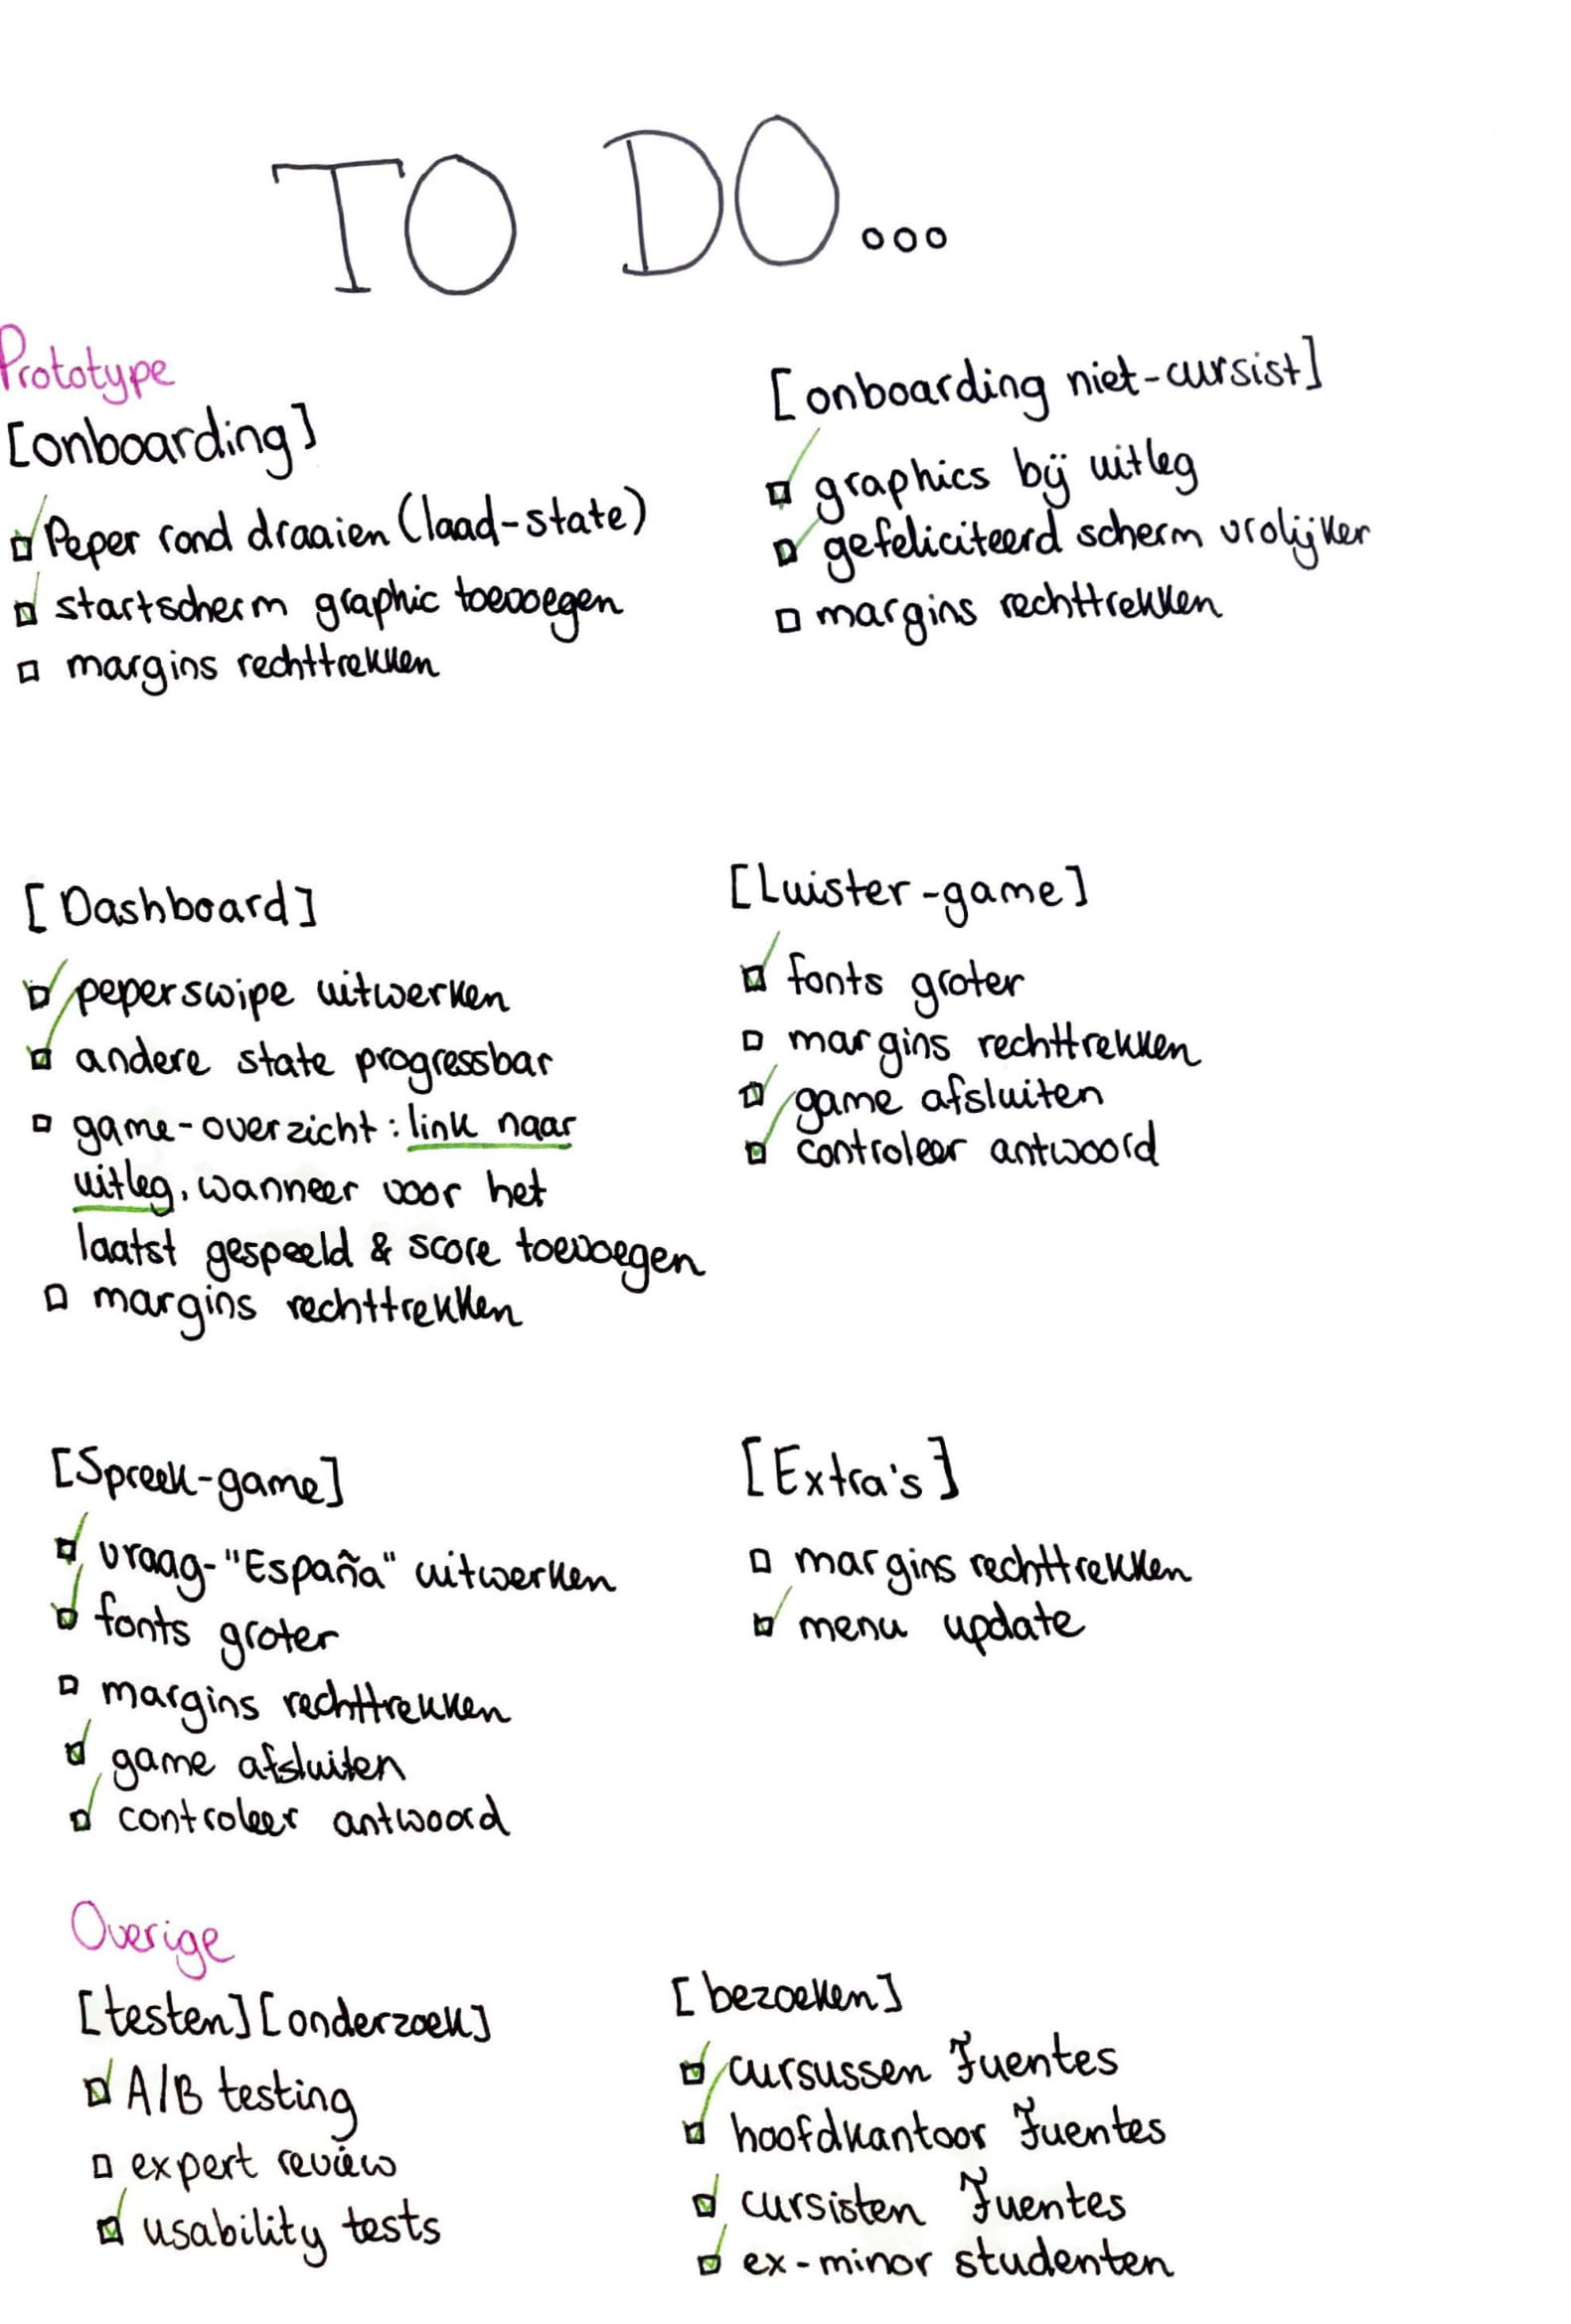 TO DO...
Prototype
[onboarding]
Peper rond draaien (laad-state)
startscherm graphic toevoegen
margins rechttrekken
[onboarding niet-cursist]
graphics bij uitleg
gefeliciteerd scherm vrolijker
margins rechttrekken
[Dashboard]
peperswipe uitwerken
andere state progressbar
game-overzicht: link naar
uitleg, wanneer voor het
laatst gespeeld & score toevoegen
margins rechttrekken
[Luister-game]
fonts groter
margins rechttrekken
game afsluiten
controleer antwoord
[Spreek-game]
vraag-"España" uitwerken
fonts groter
margins rechttrekken
game afsluiten
controleer antwoord
[Extra's]
margins rechttrekken
menu update
Overige
[testen] [onderzoek]
A/B testing
expert review
usability tests
[bezoeken]
cursussen Fuentes
hoofdkantoor Fuentes
cursisten Fuentes
ex-minor studenten